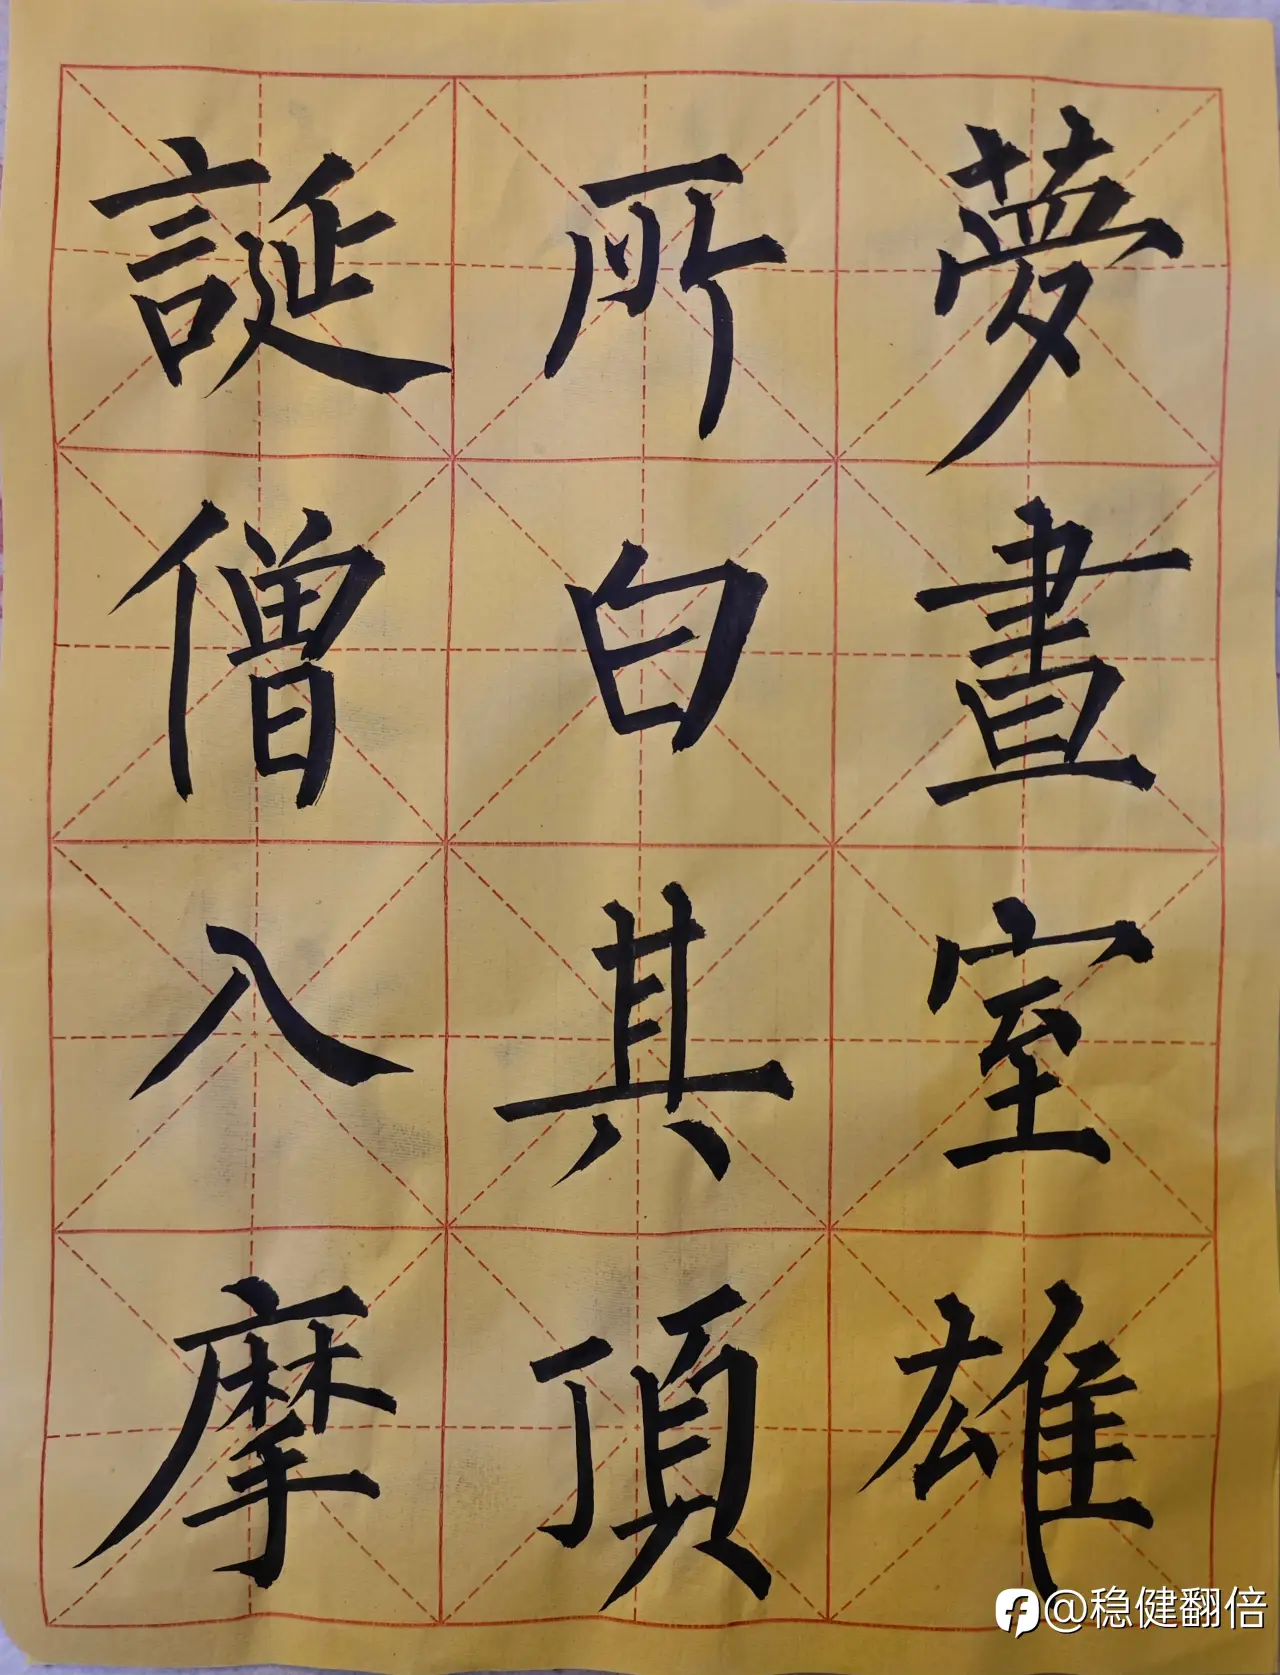 夢晝室雄
所白其頂
誕僧入摩
@稳健翻倍